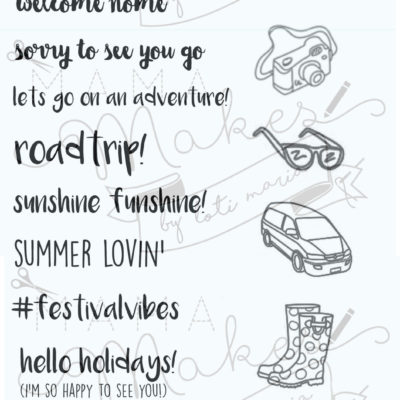 welcome home
sorry to see you go
lets go on an adventure!
roadtrip!
sunshine funshine!
SUMMER LOVIN'
#festivalvibes
hello holidays!
(I'M SO HAPPY TO SEE YOU!)
MAMA
Makes
by toti maria
MAMA
Makes